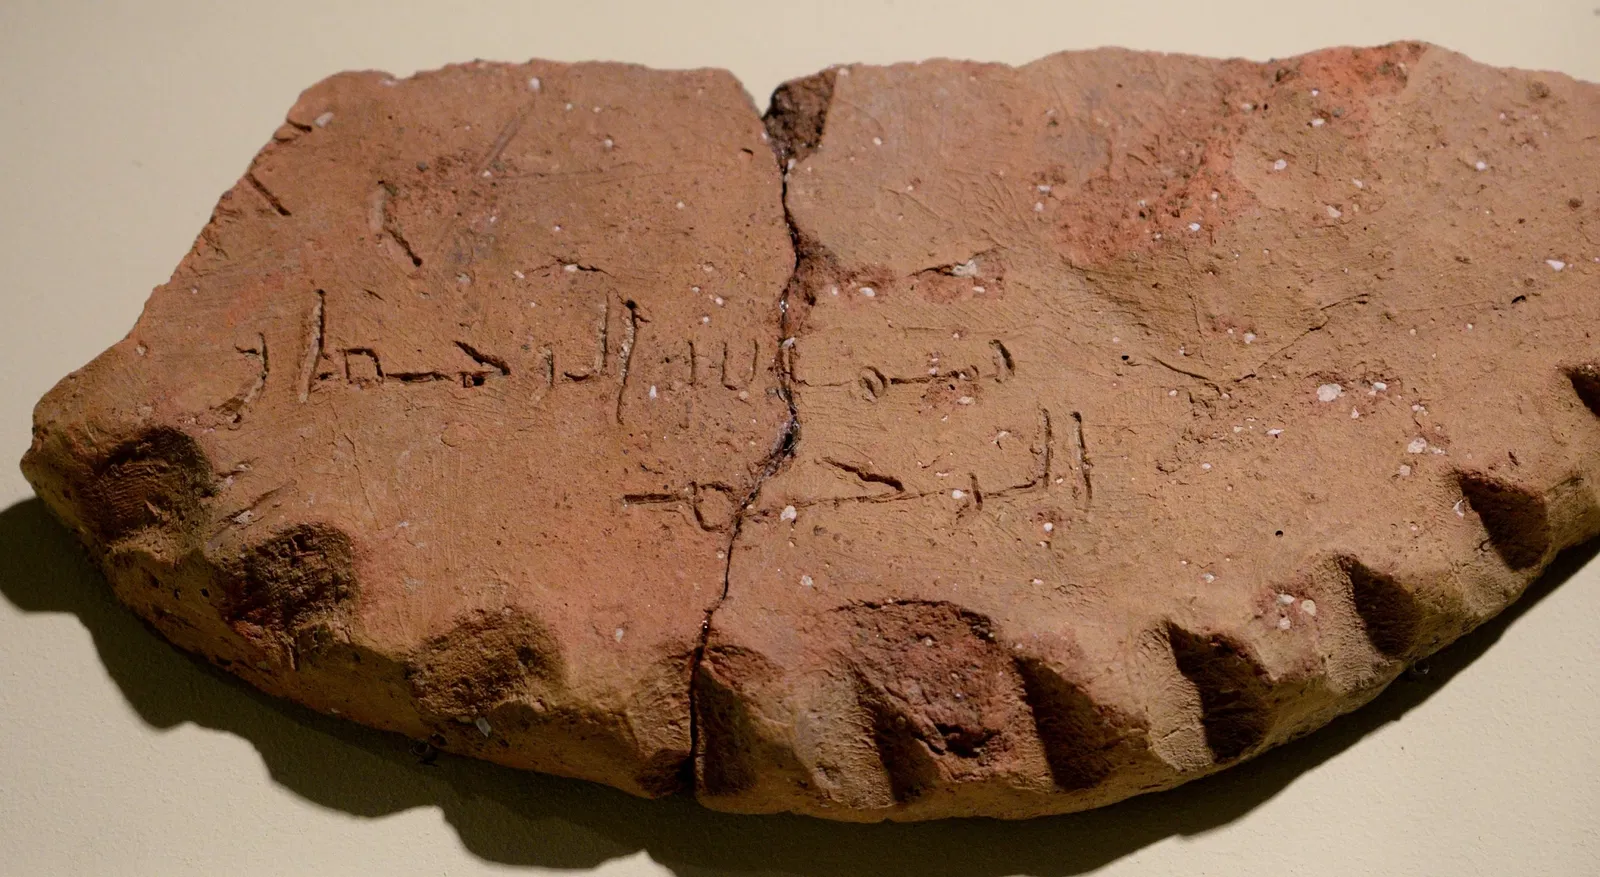 بسم الله الرحمان
الرحيم